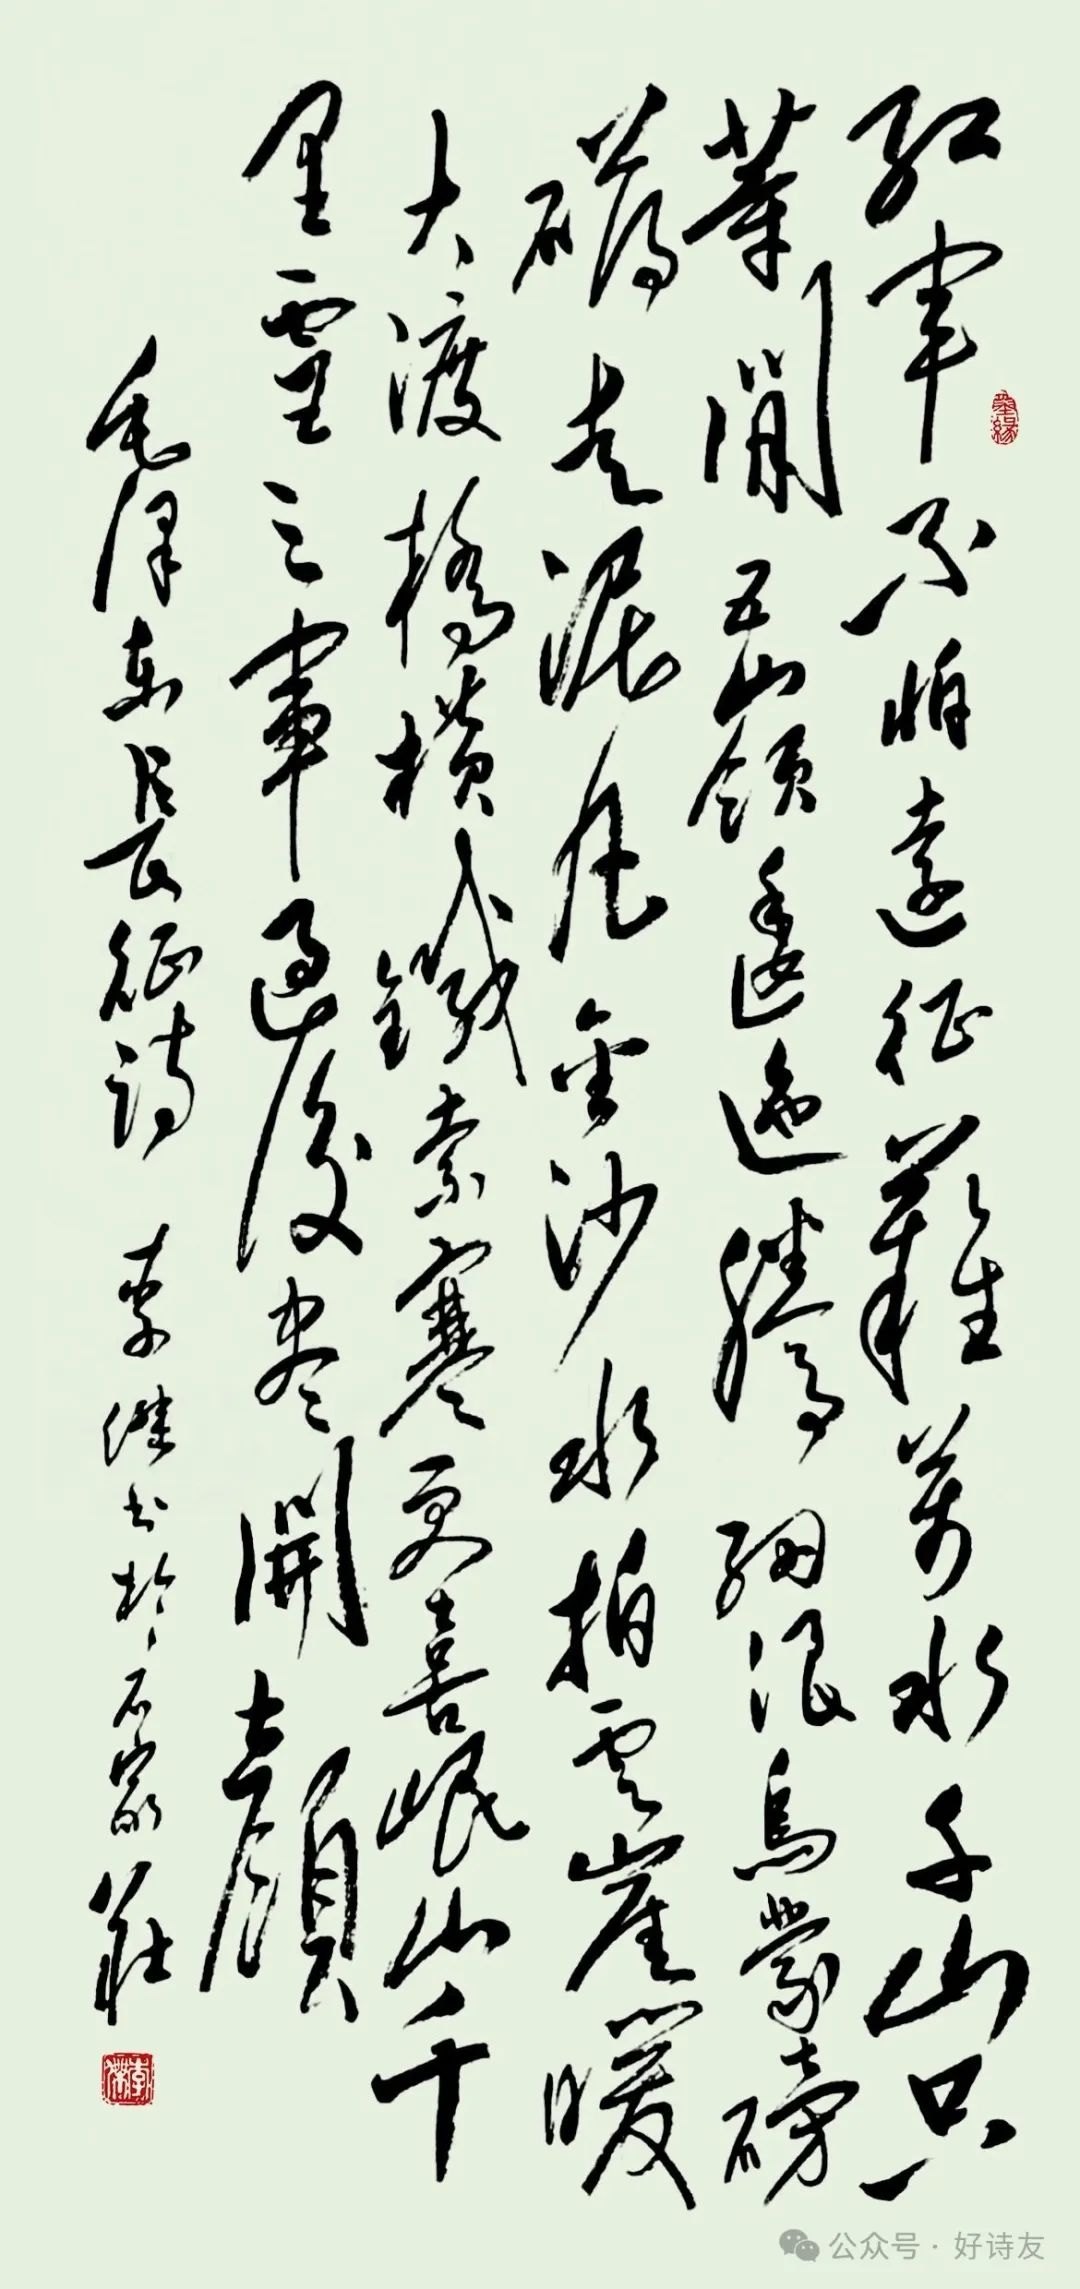 紅軍不怕遠征難萬水千山只
等閒五嶺逶迤騰細浪烏蒙磅
礴走泥丸金沙水拍雲崖暖
大渡橋橫鐵索寒更喜岷山千
里雪三軍過後尽開顏
毛澤東長征詩 李傑书於石家莊
李傑
公众号 · 好诗友